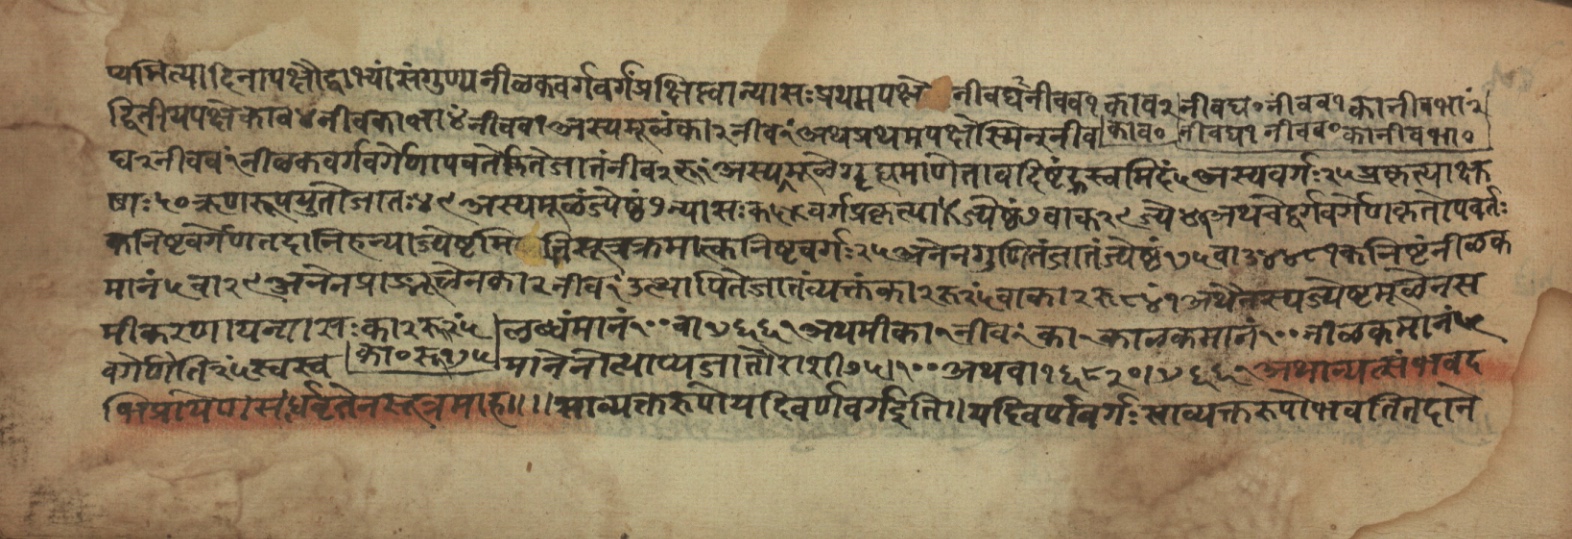 प्यमित्यादिनापक्षौद्वाभ्यांसंगुण्यनीळकवर्गवर्गंप्रक्षिप्त्वान्यासःप्रथमपक्षे नीवघ नीवव१ काव२ नीवघ० नीवव१ कानीवभा२ं
द्वितीयपक्षेकाव४नीवकाभा४ंनीवव१अस्यमूळंका२नीव१ंअथप्रथमपक्षेस्मिन्नीव काव० नीवघ१ नीवव० कानीवभा०
घ२नीवव१ंनीळकवर्गवर्गेणापवर्तितेजातंनीव२रू१ंअस्यमूळेगृह्यमाणेतावदिष्टंह्रस्वमिदं५अस्यवर्गः२५प्रकृत्याक्षु
ण्णः५०ऋणरूपयुतोजातः४९अस्यमूळंज्येष्ठं७न्यासःक५वर्गप्रकृत्या ज्येष्ठं७वाक२९ज्ये४१अथचेद्वर्गवर्गेणकृतोपवर्तः
कनिष्टवर्गेणतदानिहन्याज्येष्टमि सूत्रक्रमात्कनिष्टवर्गः२५अनेनगुणितंजातंज्येष्ठं१७५वा३४४८१कनिष्टंनीळक
मानं५वा२९अनेनप्राङ्मूळेनका२नीव१ंउत्थापितेजातंव्यक्तंका२रू२ं५वाका२रू८४ं१अथैतस्यज्येष्टमूळेनस
मीकरणायन्यासः का२रू२ं५ लब्धंमानं१००वा१७६६१अथमीका१नीव१ंका१काळकमानं१००नीळकमानं५
वर्गेणेति२ं५स्वस्व का०रू१७५ मानेनोत्थाप्यजातौराशी७५।१००अथवा१६८२०।१७६६१अथान्यत्संभवद
भिप्रायेणसार्धवृत्तेनसूत्रमाह॥।।साव्यक्तरूपोयदिवर्णवर्गइति॥यदिवर्णवर्गःसाव्यक्तरूपोभवतितदाने